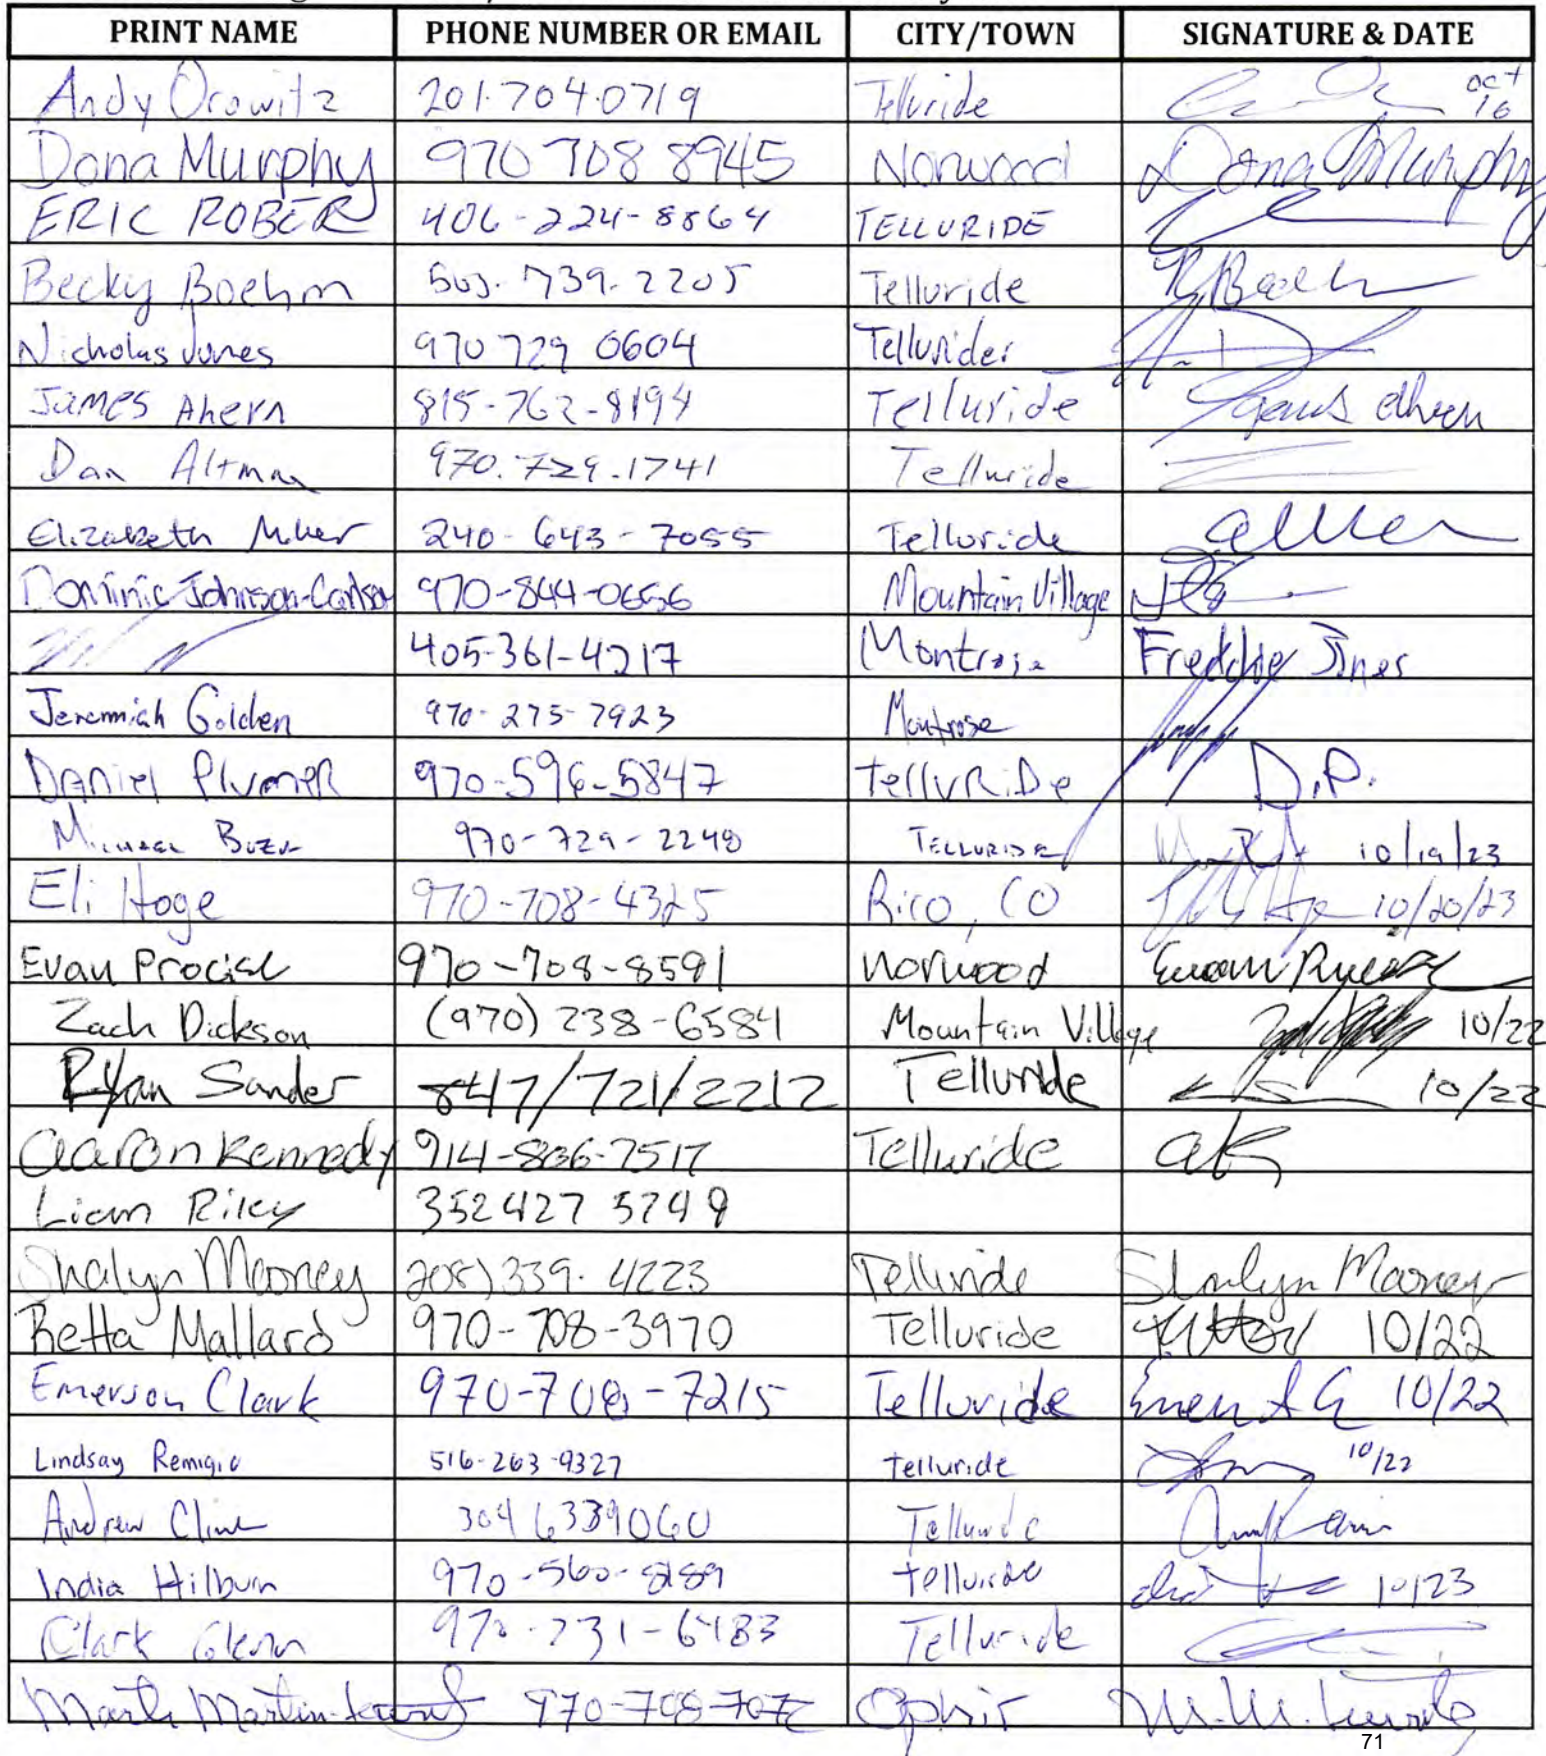 PRINT NAME PHONE NUMBER OR EMAIL CITY/TOWN SIGNATURE & DATE
Andy Orowitz 201.704.0719 Telluride oct 16
Dona Murphy 970 708 8945 Norwood Dona Murphy
ERIC ROBER 406-224-8864 TELLURIDE
Becky Boehm 503.739.2205 Telluride
Nicholas Jones 970 729 0604 Tellurider
James Ahern 815-762-8194 Telluride
Dan Altman 970.729.1741 Telluride
Elizabeth 240-643-7055 Telluride
Dominic Johnson-Carlson 970-844-0656 Mountain Village
405-361-4217 Montrose Freddie Jones
Jeremiah Golden 970-275-7923 Montrose
DANiel PlumeR 970-596-5847 TelluRiDe D.P.
970-729-2248 TELLURIDE 10/19/23
Eli Hoge 970-708-4325 Rico, CO 10/20/23
Evan Prociuk 970-708-8591 Norwood
Zach Dickson (970) 238-6584 Mountain Village 10/22
Ryan Sander 847/721/2212 Telluride 10/22
Aaron Kennedy 914-806-7517 Telluride ak
Liam Riley 352 427 5749
Shalyn Mooney 208) 339.4223 Telluride Shalyn Mooney
Retta Mallard 970-708-3970 Telluride 10/22
Emerson Clark 970-708-7215 Telluride 10/22
Lindsay Remigio 516-263-9327 telluride 10/22
Andrew Cline 304 6339060 Telluride
India Hilburn 970-560-8189 telluride 10/23
Clark Glenn 970-731-6483 Telluride
Martin 970-708-707 Ophir
71